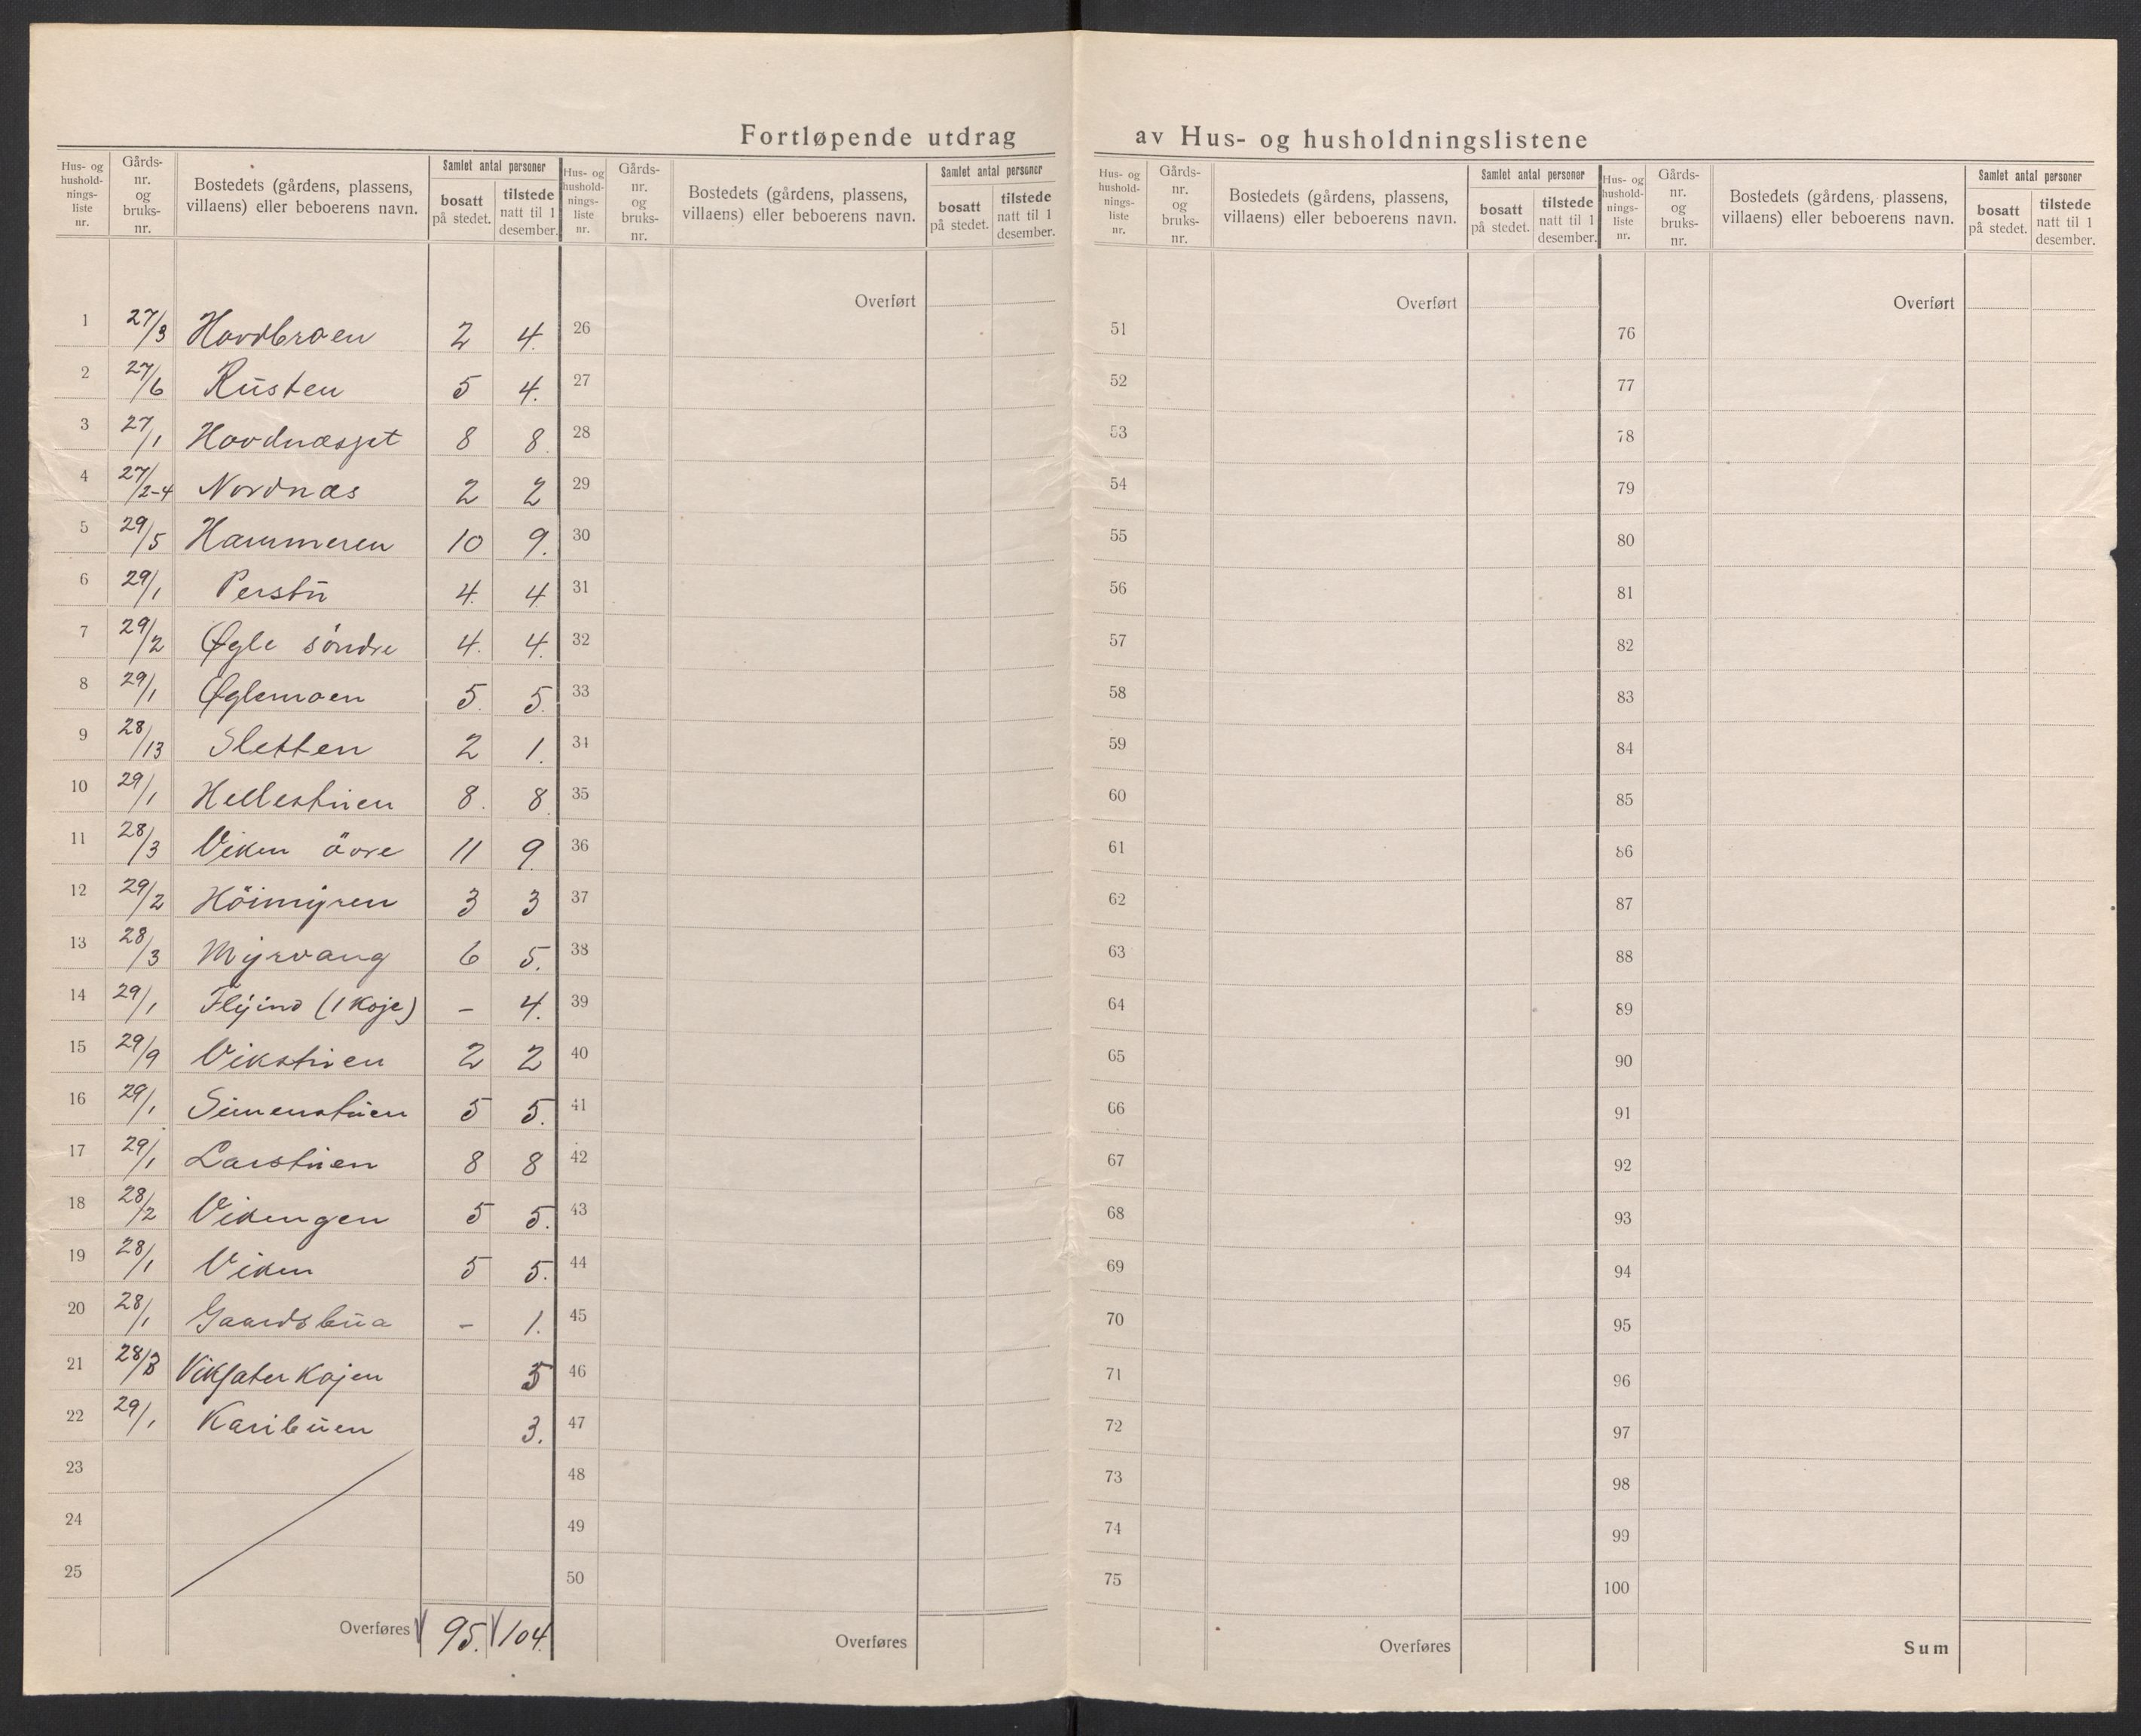 Fortløpende utdrag av Hus- og husholdningslistene
Hus- og hushold- nings- liste nr. Gårds- nr. og bruks- nr. Bostedets (gårdens, plassens, villaens) eller beboerens navn. Samlet antal personer bosatt på stedet. tilstede natt til 1 desember.
1 27/3 Hovdbroen 2 4.
2 27/6 Rusten 5 4.
3 27/1 Hovdnæsset 8 8.
4 27/2-4 Nordnæs 2 2
5 29/5 Hammeren 10 9.
6 29/1 Perstu 4. 4.
7 29/2 Øgle söndre 4. 4.
8 29/1 Øglemoen 5. 5.
9 28/13 Sletten 2 1.
10 29/1 Hellestuen 8. 8
11 28/3 Viken övre 11 9.
12 29/2 Höimyren 3 3
13 28/3 Myrvang 6 5.
14 29/1 (1 Koje) – 4.
15 29/9 Vikstuen 2 2
16 29/1 Simenstuen 5 5.
17 29/1 Larstuen 8 8
18 28/2 Vikengen 5 5.
19 28/1 Viken 5 5.
20 28/1 Gaardsbua – 1.
21 28/3 Viksæter Kojen 5
22 29/1 Karibuen 3.
23
24
25
Overføres 95. 104.
Hus- og hushold- nings- liste nr. Gårds- nr. og bruks- nr. Bostedets (gårdens, plassens, villaens) eller beboerens navn. Samlet antal personer bosatt på stedet. tilstede natt til 1 desember.
Overført
26
27
28
29
30
31
32
33
34
35
36
37
38
39
40
41
42
43
44
45
46
47
48
49
50
Overføres
Hus- og hushold- nings- liste nr. Gårds- nr. og bruks- nr. Bostedets (gårdens, plassens, villaens) eller beboerens navn. Samlet antal personer bosatt på stedet. tilstede natt til 1 desember.
Overført
51
52
53
54
55
56
57
58
59
60
61
62
63
64
65
66
67
68
69
70
71
72
73
74
75
Overføres
Hus- og hushold- nings- liste nr. Gårds- nr. og bruks- nr. Bostedets (gårdens, plassens, villaens) eller beboerens navn. Samlet antal personer bosatt på stedet. tilstede natt til 1 desember.
Overført
76
77
78
79
80
81
82
83
84
85
86
87
88
89
90
91
92
93
94
95
96
97
98
99
100
Sum